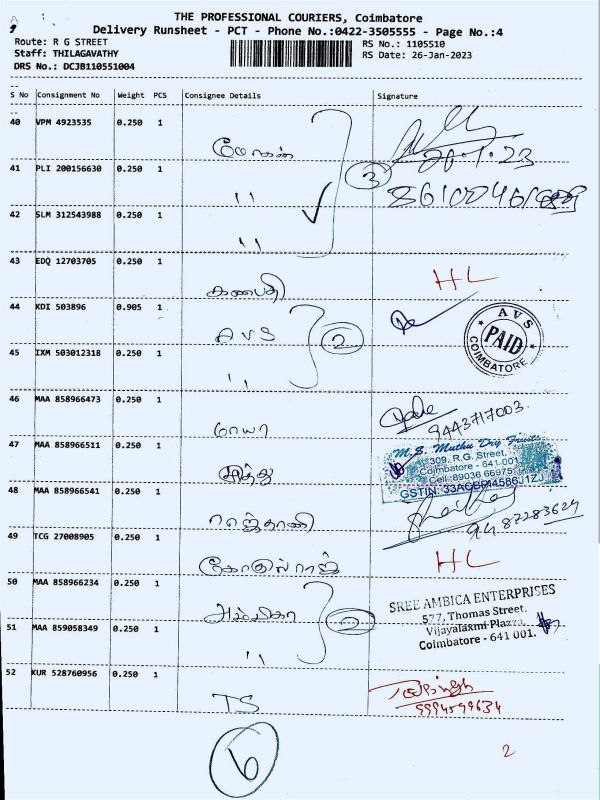 THE PROFESSIONAL COURIERS, Coimbatore
Delivery Runsheet - PCT - Phone No.:0422-3505555 - Page No.:4
Route: R G STREET
RS No.: 1105510
Staff: THILAGAVATHY
RS Date: 26-Jan-2023
DRS No.: DCJB110551004
S No Consignment No Weight PCS Consignee Details Signature
40 VPM 4923535 0.250 1
41 PLI 200156630 0.250 1 " 3
42 SLM 312543988 0.250 1 "
43 EDQ 12703705 0.250 1 கணபதி HL
44 KDI 503896 0.905 1 AVS
AVS PAID COIMBATORE
45 IXM 503012318 0.250 1 " 2
46 MAA 858966473 0.250 1 மாயா 9443717003
47 MAA 858966511 0.250 1 முத்து
M.S. Muthu Dry Fruits
309, R.G. Street,
Coimbatore - 641 001
Cell: 89036 66975
48 MAA 858966541 0.250 1 ராஜ்தானி 9487283629
49 TCG 27008905 0.250 1 HL
50 MAA 858966234 0.250 1 அம்பிகா
SREE AMBICA ENTERPRISES
577, Thomas Street,
Vijayalaxmi Plazza,
Coimbatore - 641 001.
51 MAA 859058349 0.250 1 "
52 KUR 528760956 0.250 1 TS
9994599634
6
2